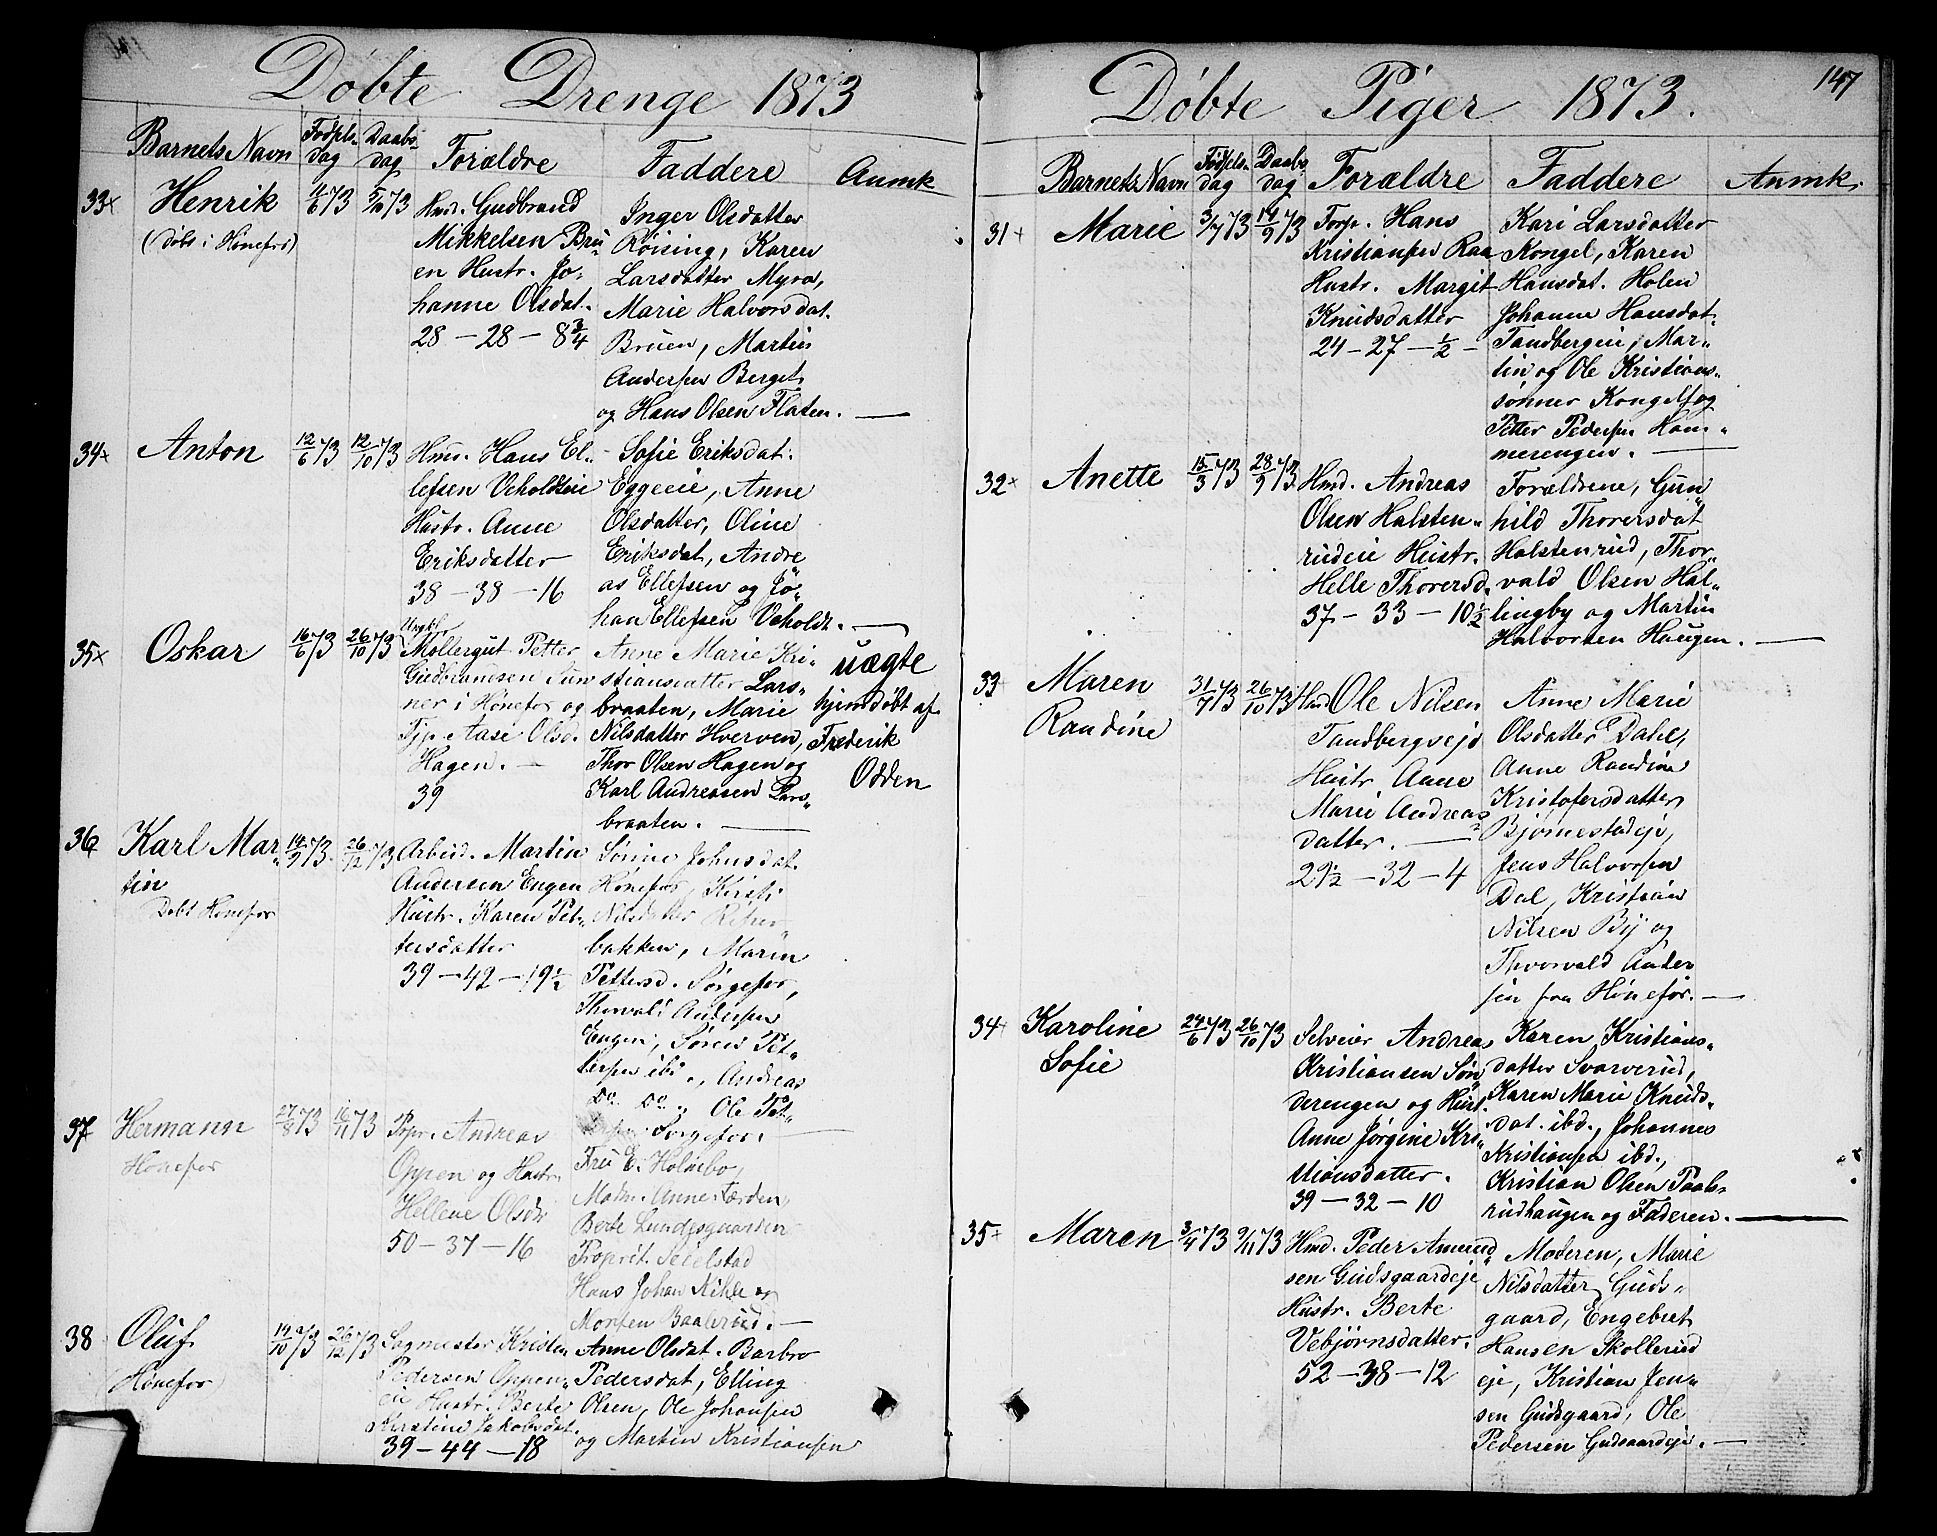 Døbte Drenge 1873
Barnets Navn Fødsels- dag Daabs- dag Forældre Faddere Anmk
33 Henrik 11/6 73 5/10 73
(døbt i Hønefos)
Hmd. Gudbrand
Mikkelsen Bru-
en Hustr. Jo-
hanne Olsdat.
28 - 28 - 8 3/4
Inger Olsdatter
Røising, Karen
Larsdatter Myra,
Marie Halvorsdat.
Bruen, Martin
Andersen Berget
og Hans Olsen Flaten.
34 Anton 12/6 73 12/10 73
Hmd. Hans El-
lefsen Veholdteie
Hustr. Anne
Eriksdatter
38 - 38 - 16
Sofie Eriksdat.
Eggeeie, Anne
Olsdatter, Oline
Eriksdat, Andre
as Ellefsen og Jo-
han Ellefsen Veholdt.
35 Oskar 16/6 73 26/10 73
Ungkl.
Møllergut Petter
Gudbrandsen
ner i Hønefos og
Tjp. Aase Olsd.
Hagen.
39
Anne Marie Kri-
stiansdatter Lars-
braaten, Marie
Nilsdatter Hverven,
Thor Olsen Hagen og
Karl Andreasen Lars-
braaten.
uægte
hjemdøbt af
Frederik
Odden
36 Karl Mar- 14/9 73 26/12 73
tin
Døbt Hønefos
Arbeid. Martin
Andersen Engen
Hustr. Karen Pet-
tersdatter
39 - 42 - 19 1/2
Sørine Johnsdat.
Hønefos, Kirsti
Nilsdatter
bakken, Maren
Pettersd. Sørgefos,
Thorvald Andersen
Engen, Søren Pet-
tersen ibd., Andreas
Do Do, Ole Pet-
tersen Sørgefos.
37 Hermann 27/8 73 16/11 73
Hønefos
Propr. Andreas
Oppen og Hustr.
Hellene Olsdr
50 - 37 - 16
Fru E. Holmbo,
Madm. Anne Færden
Berte Lundesgaarden
Propriet. Seielstad
Hans Johan Kihle og
Morten Baalerud.
38 Oluf 19/10 73 26/12 73
(Hønefos)
Sagmester Kristen
Pedersen Oppen-
eie Hustr. Berte
Kirstine Jakobsdat.
39 - 44 - 18
Anne Olsdat. Barbro
Pedersdat, Elling
Olsen, Ole Johansen
og Martin Kristiansen
Døbte Piger 1873. 147
Barnets Navn Fødsels- dag Daabs- dag Forældre Faddere Anmk.
31 Marie 3/7 73 14/9 73
Torp. Hans
Kristiansen Raa
Hustr. Margit
Knudsdatter
24 - 27 - 1/2
Kari Larsdatter
Kongel, Karen
Hansdat. Holen
Johanne Hansdat.
Tandbergeie, Mar-
tin og Ole Kristians-
sønner Kongelf og
Petter Pedersen Ham-
merengen.
32 Anette 15/3 73 28/9 73
Hmd. Andreas
Olsen Halsten-
rudeie Hustr.
Helle Thorersd.
37 - 33 - 10 1/2
Forældrene, Gun
hild Thorersdat
Halstenrud, Thor-
vald Olsen Hal-
lingby og Martin
Halvorsen Haugen.
33 Maren 31/7 73 26/10 73
Randine
Hmd Ole Nilsen
Tandbergseje
Hustr Anne
Marie Andreas
datter.
29 1/2 - 32 - 4
Anne Marie
Olsdatter Dahl,
Anne Randine
Kristofersdatter
Bjørnestadeje,
Jens Halvorsen
Dal, Kristian
Nilsen By og
Thorvald Ander
sen fra Hønefos.
34 Karoline 24/6 73 26/10 73
Sofie
Selveier Andreas
Kristiansen Søn
derengen og Hust.
Anne Jørgine Kri-
stiansdatter.
39 - 32 - 10
Karen Kristians-
datter Svarverud,
Karen Marie Knuds-
dat. ibd., Johannes
Kristiansen ibd.,
Kristian Olsen Paals-
rudhaugen og Faderen.
35 Maren 3/4 73 9/11 73
Hmd. Peder Amund
sen Gudsgaardeje
Hustr. Berte
Vebjørnsdatter.
52 - 38 - 12
Moderen, Marie
Nilsdatter Guds-
gaard, Engebret
Hansen Skollerud
eje, Kristian Jen-
sen Gudsgaard, Ole
Pedersen Gudsaardeje.